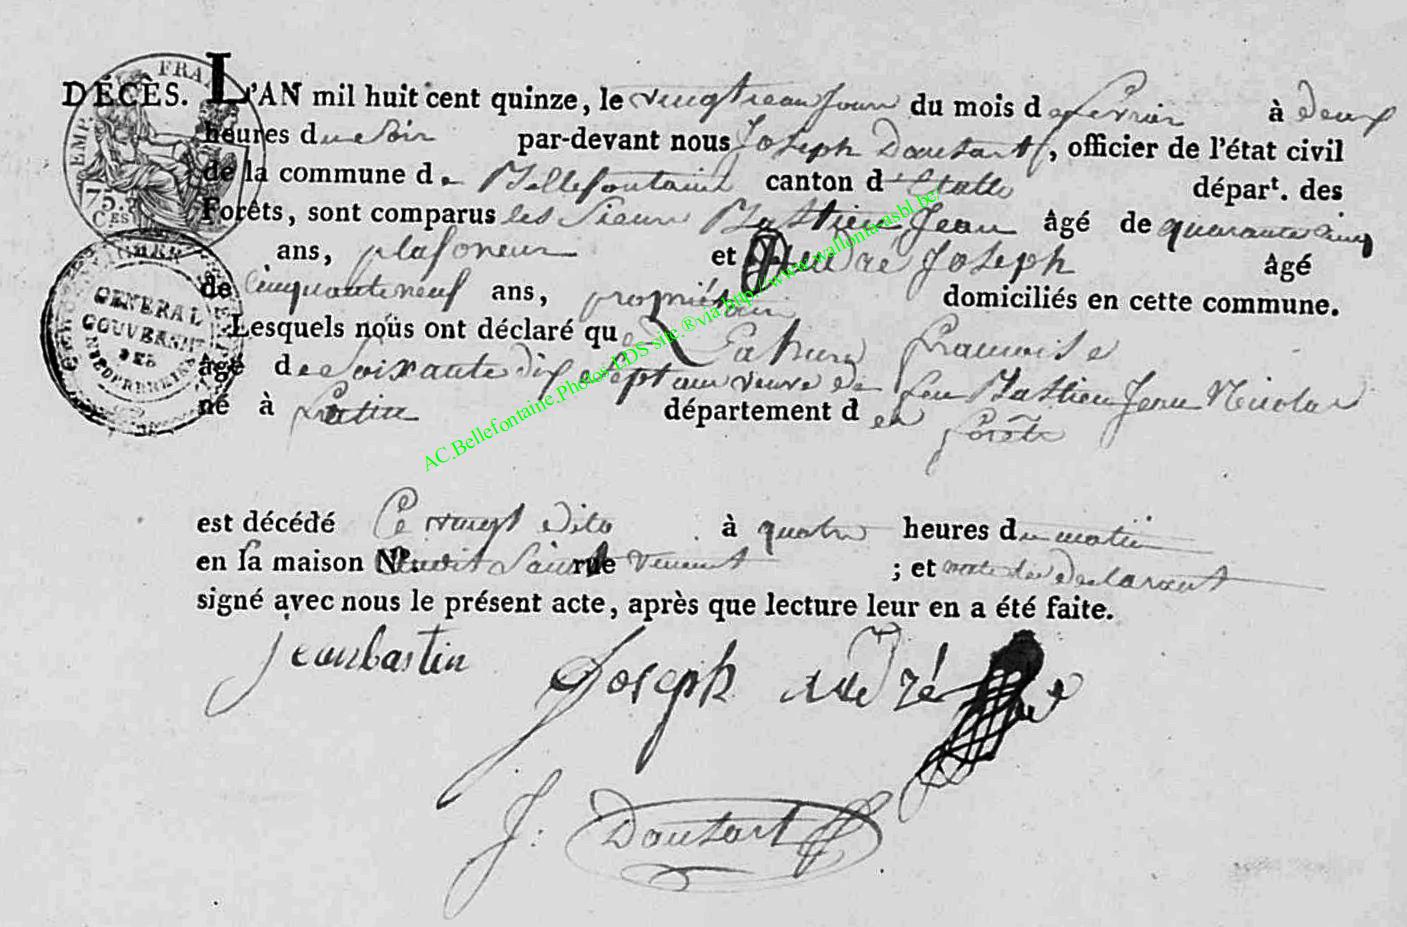 DÉCÈS. L'AN mil huit cent quinze, le vingt jour du mois de fevrier à deux
heures du soir par-devant nous Joseph Dautart, officier de l'état civil
de la commune de Bellefontaine canton d'Etalle départ. des
Forêts, sont comparus les Sieurs Bastien Jean âgé de quarante cinq
ans, plafoneur et André Joseph âgé
de Cinquante neuf ans, propriétaire domiciliés en cette commune.
Lesquels nous ont déclaré que Lahure francoise
âgé de Soixante dix sept ans veuve de feu Bastien Jean Nicolas
né à fratin département de forêts
est décédé Ce vingt dito à quatre heures du matin
en sa maison rue ; et declarant
signé avec nous le présent acte, après que lecture leur en a été faite.
jean bastin Joseph André
J: Dautart
FRAN
EMP.
75.
CES
GENERAL
GOUVERNMT
DES
AC.Bellefontaine.Photos LDS site.®via http://www.wallonia-asbl.be/